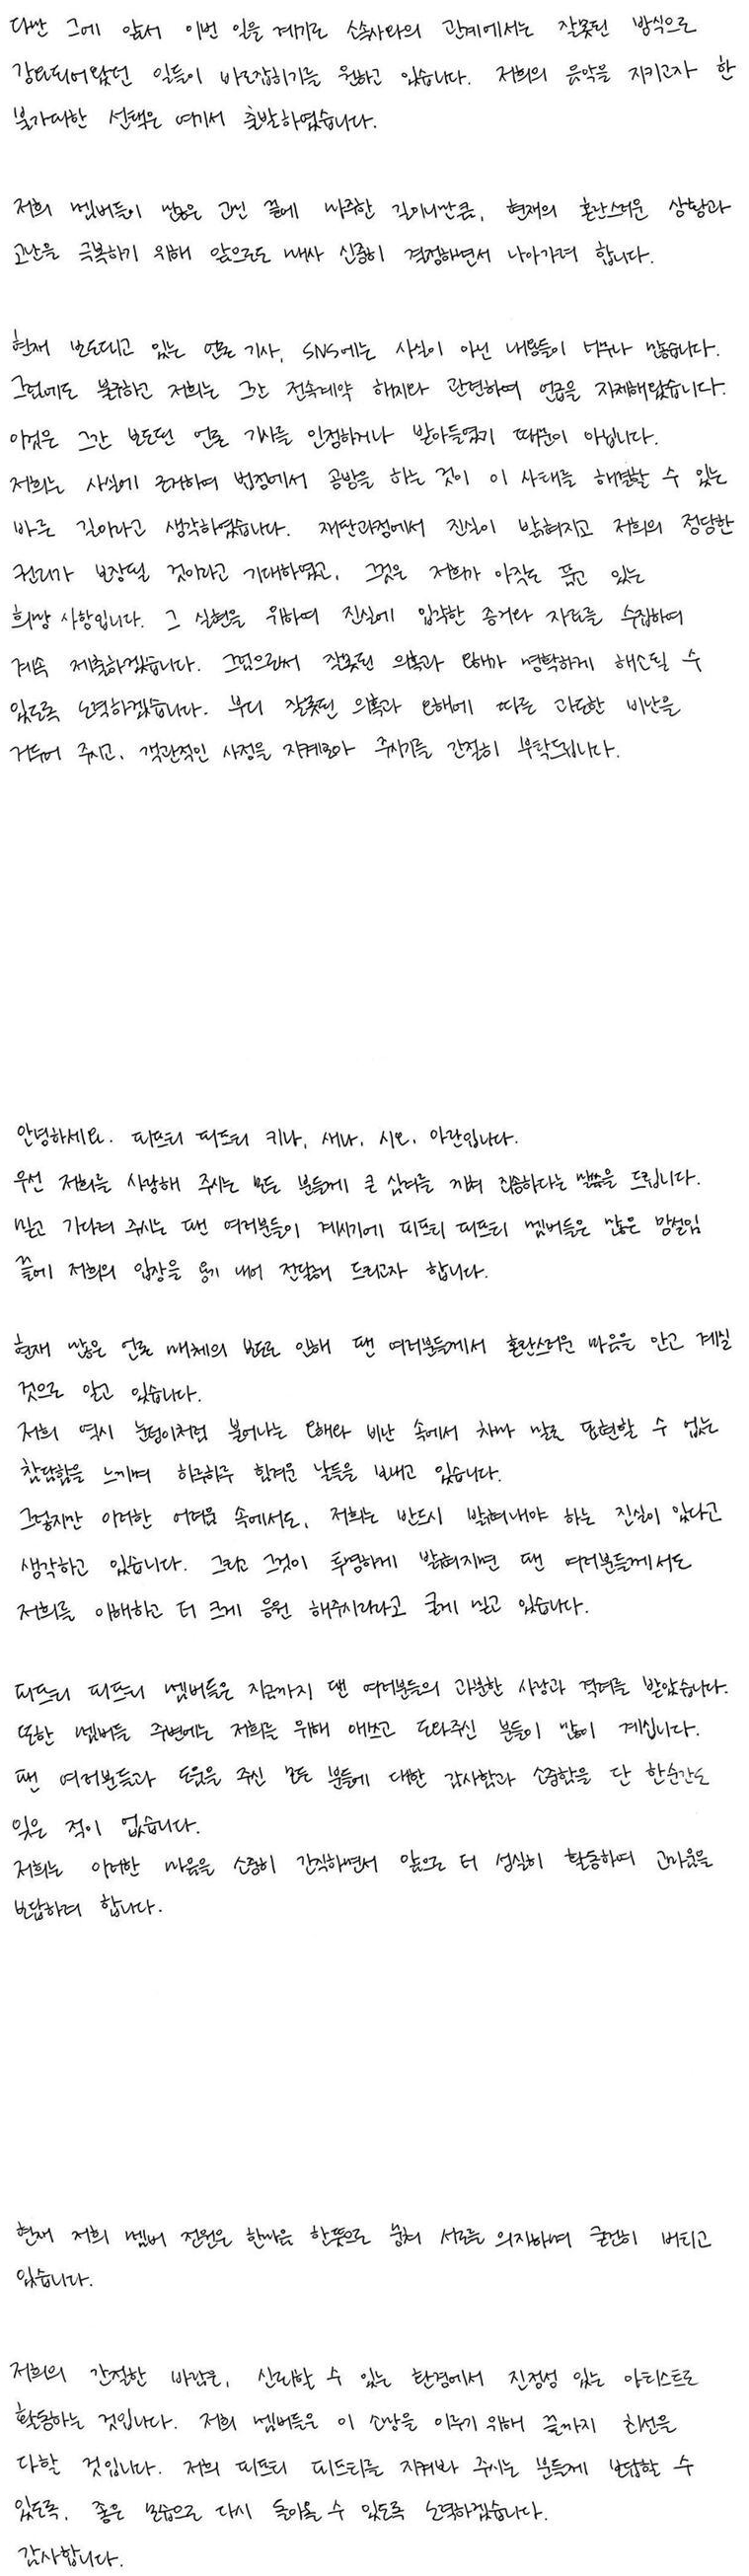 다만 그에 앞서 이번 일을 계기로 소속사와의 관계에서는 잘못된 방식으로
강요되어왔던 일들이 바로잡히기를 원하고 있습니다. 저희의 음악을 지키고자 한
불가피한 선택은 여기서 출발하였습니다.
저희 멤버들이 많은 고민 끝에 마주한 길이니만큼, 현재의 혼란스러운 상황과
고난을 극복하기 위해 앞으로도 매사 신중히 결정하면서 나아가려 합니다.
현재 보도되고 있는 언론 기사, SNS에는 사실이 아닌 내용들이 너무나 많습니다.
그럼에도 불구하고 저희는 그간 전속계약 해지와 관련하여 언급을 자제해왔습니다.
이것은 그간 보도된 언론 기사를 인정하거나 받아들였기 때문이 아닙니다.
저희는 사실에 근거하여 법정에서 공방을 하는 것이 이 사태를 해결할 수 있는
바른 길이라고 생각하였습니다. 재판과정에서 진실이 밝혀지고 저희의 정당한
권리가 보장될 것이라고 기대하였고, 그것은 저희가 아직도 품고 있는
희망 사항입니다. 그 실현을 위하여 진실에 입각한 증거와 자료를 수집하여
계속 제출하겠습니다. 그럼으로써 잘못된 의혹과 오해가 명확하게 해소될 수
있도록 노력하겠습니다. 부디 잘못된 의혹과 오해에 따른 과도한 비난을
거두어 주시고, 객관적인 사정을 지켜보아 주시기를 간절히 부탁드립니다.
안녕하세요. 피프티 피프티 키나, 새나, 시오, 아란입니다.
우선 저희를 사랑해 주시는 모든 분들께 큰 심려를 끼쳐 죄송하다는 말씀을 드립니다.
믿고 기다려 주시는 팬 여러분들이 계시기에 피프티 피프티 멤버들은 많은 망설임
끝에 저희의 입장을 용기 내어 전달해 드리고자 합니다.
현재 많은 언론 매체의 보도로 인해 팬 여러분들께서 혼란스러운 마음을 안고 계실
것으로 알고 있습니다.
저희 역시 눈덩이처럼 불어나는 오해와 비난 속에서 차마 말로 표현할 수 없는
참담함을 느끼며 하루하루 힘겨운 날들을 보내고 있습니다.
그렇지만 이러한 어려움 속에서도, 저희는 반드시 밝혀내야 하는 진실이 있다고
생각하고 있습니다. 그리고 그것이 투명하게 밝혀지면 팬 여러분들께서도
저희를 이해하고 더 크게 응원 해주시리라고 굳게 믿고 있습니다.
피프티 피프티 멤버들은 지금까지 팬 여러분들의 과분한 사랑과 격려를 받았습니다.
또한 멤버들 주변에는 저희를 위해 애쓰고 도와주신 분들이 많이 계십니다.
팬 여러분들과 도움을 주신 모든 분들에 대한 감사함과 소중함을 단 한순간도
잊은 적이 없습니다.
저희는 이러한 마음을 소중히 간직하면서 앞으로 더 성실히 활동하여 고마움을
보답하려 합니다.
현재 저희 멤버 전원은 한마음 한뜻으로 뭉쳐 서로를 의지하며 굳건히 버티고
있습니다.
저희의 간절한 바람은, 신뢰할 수 있는 환경에서 진정성 있는 아티스트로
활동하는 것입니다. 저희 멤버들은 이 소망을 이루기 위해 끝까지 최선을
다할 것입니다. 저희 피프티 피프티를 지켜봐 주시는 분들께 보답할 수
있도록, 좋은 모습으로 다시 돌아올 수 있도록 노력하겠습니다.
감사합니다.